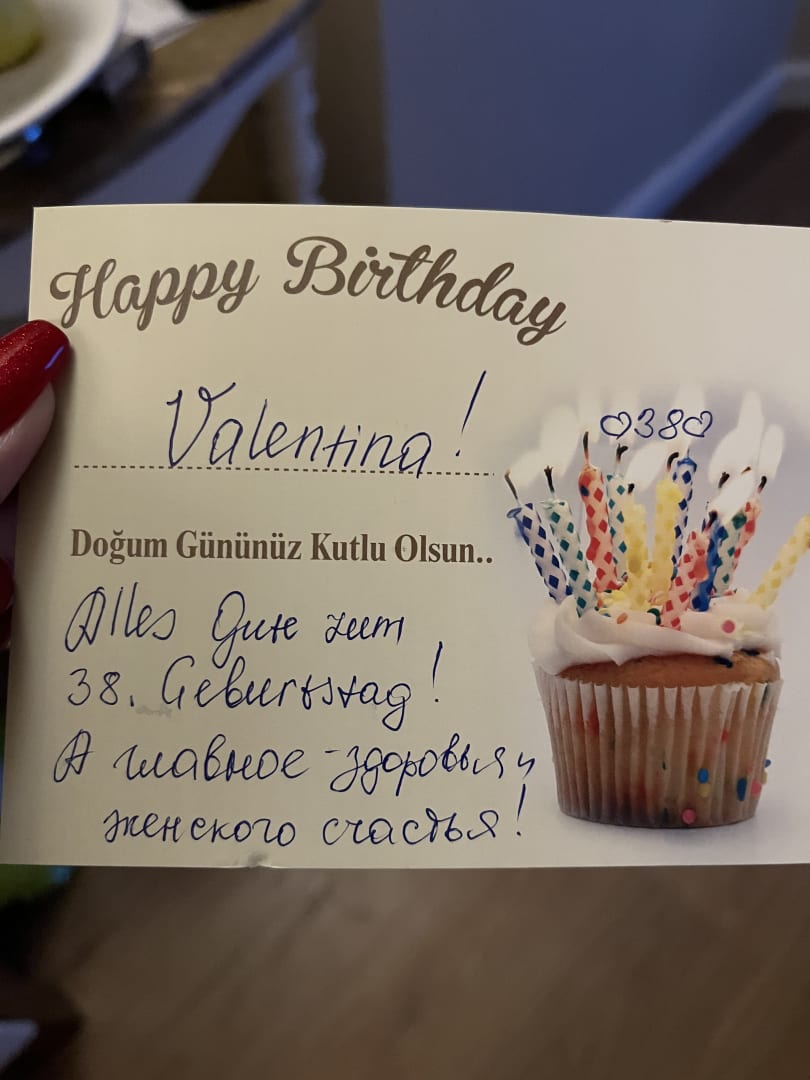 Happy Birthday
Valentina!
♡38♡
Doğum Gününüz Kutlu Olsun..
Alles Gute zum
38. Geburtstag!
А главное - здоровья и
женского счастья!